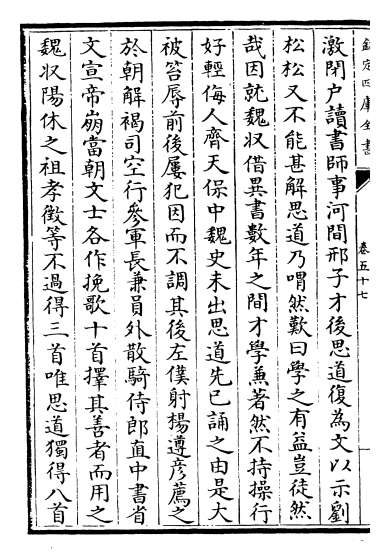 欽定四庫全書
卷五十七
激閉户讀書師事河間邢子才後思道復為文以示劉
松松又不能甚解思道乃喟然歎曰學之有益豈徒然
哉因就魏収借異書數年之間才學兼著然不持操行
好輕侮人齊天保中魏史未出思道先已誦之由是大
被笞辱前後屢犯因而不調其後左僕射楊遵彦薦之
於朝解褐司空行參軍長兼員外散騎侍郎直中書省
文宣帝崩當朝文士各作挽歌十首擇其善者而用之
魏収陽休之祖孝徴等不過得三首唯思道獨得八首